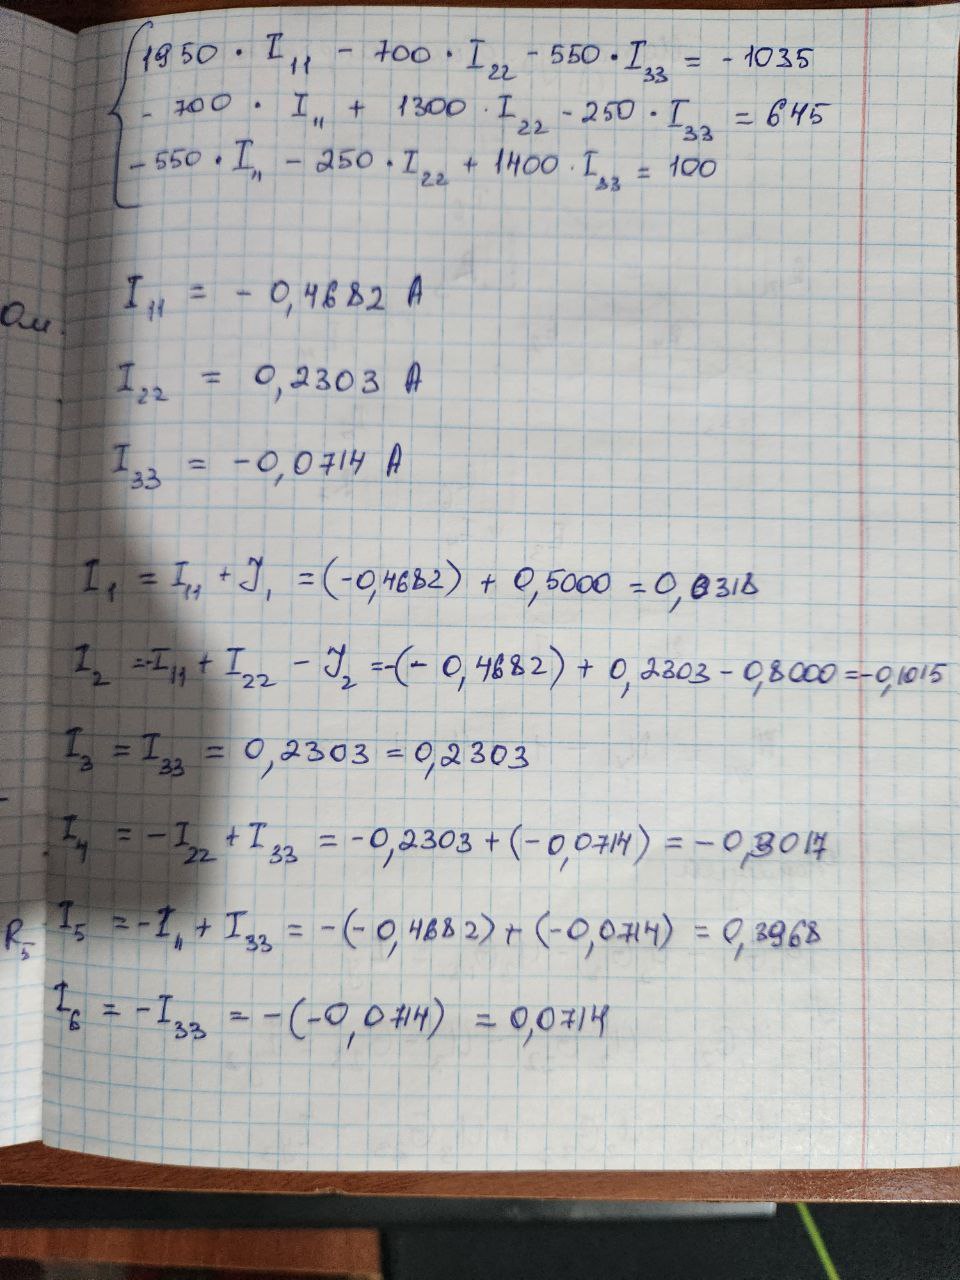 1950 · I₁₁ - 700 · I₂₂ - 550 · I₃₃ = - 1035
- 700 · I₁₁ + 1300 · I₂₂ - 250 · I₃₃ = 645
- 550 · I₁₁ - 250 · I₂₂ + 1400 · I₃₃ = 100
I₁₁ = - 0,4682 A
Ом.
I₂₂ = 0,2303 A
I₃₃ = -0,0714 A
I₁ = I₁₁ + J₁ = (-0,4682) + 0,5000 = 0,0318
I₂ = -I₁₁ + I₂₂ - J₂ = -(- 0,4682) + 0,2303 - 0,8000 = -0,1015
I₃ = I₃₃ = 0,2303 = 0,2303
I₄ = -I₂₂ + I₃₃ = -0,2303 + (-0,0714) = -0,3017
R₅
I₅ = -I₁₁ + I₃₃ = -(-0,4682) + (-0,0714) = 0,3968
I₆ = -I₃₃ = -(-0,0714) = 0,0714